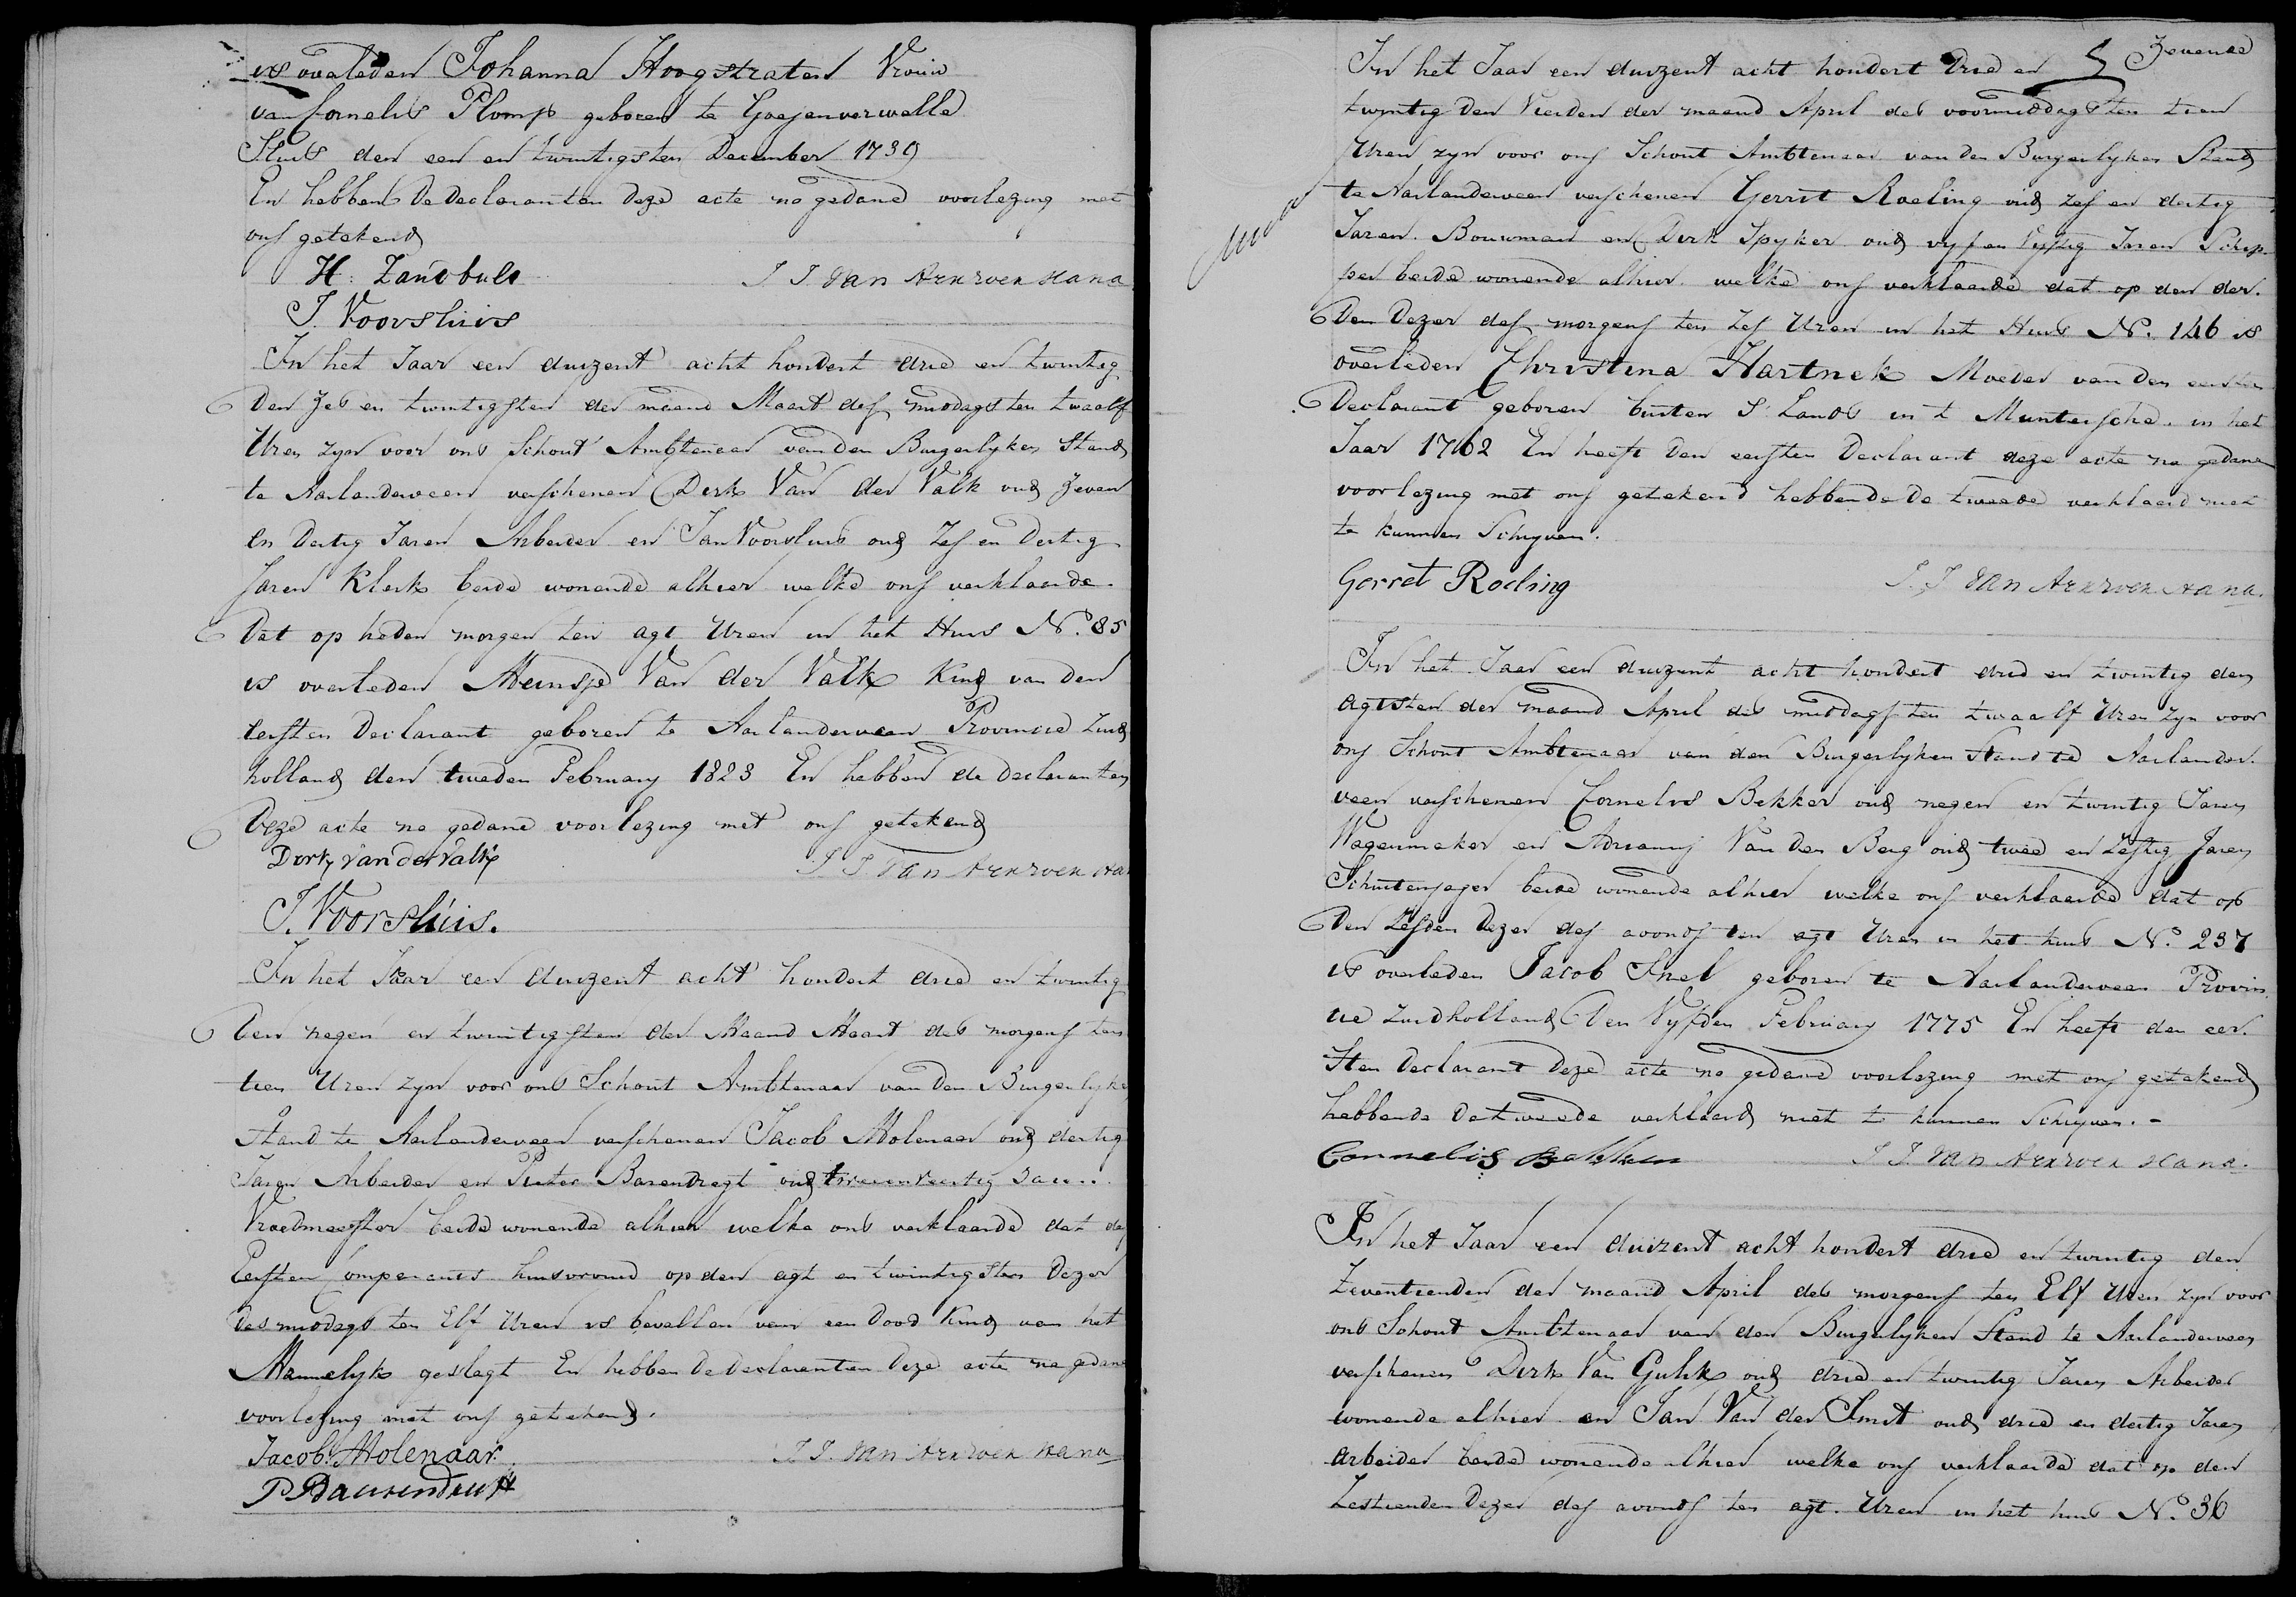 is overleden Johanna Hoogstraten Vrouw
van Cornelis Plomp geboren te Goejenverwelle
Sluis den een en twintigsten December 1739
En hebben de declaranten deze acte na gedane voorlezing met
ons getekend
H: Zandbult J J Van
J. Voorsluis
In het Jaar een duizent acht hondert drie en twintig
den zes en twintigsten der maand Maart des middags ten twaalf
Uren zyn voor ons Schout Ambtenaar van den Burgerlyken Stand
te Aarlanderveen verschenen Dirk Van der Valk oud zeven
en dertig Jaren Arbeider en Jan Voorsluis oud Zes en Dertig
Jaren Klerk beide wonende alhier welke ons verklaarde
Dat op heden morgen ten agt Uren in het Huis No. 85
is overleden Meinsje Van der Valk Kind van den
eersten Declarant geboren te Aarlanderveen Provincie Zuid
holland den tweden February 1823 En hebben de declaranten
deze acte na gedane voorlezing met ons getekend
Dirk van der Valk J J Van
J. Voorsluis.
In het Jaar een duizent acht hondert drie en twintig
den negen en twintigsten der Maand Maart des morgens ten
tien Uren zyn voor ons Schout Ambtenaar van den Burgerlyke
Stand te Aarlanderveen verschenen Jacob Molenaar oud dertig
Jaren Arbeider en Pieter Barendregt oud Jaren
Vroedmeester beide wonende alhier welke ons verklaarde dat des
Eersten Comparants huisvrouw op den agt en twintigsten dezer
des middags ten Elf Uren is bevallen van een dood Kind van het
Mannelyk geslagt En hebben de declaranten deze acte na gedane
voorlezing met ons getekend.
Jacob Molenaar J. J. Van
P
Zevende
In het Jaar een duizent acht hondert drie en
twintig den Vierden der maand April des voormiddags ten tien
Uren zyn voor ons Schout Ambtenaar van den Burgerlyken Stand
te Aarlanderveen verschenen Gerrit Roeling oud zes en dertig
Jaren Bouwman en Dirk Spyker oud vyf en Vyftig Jaren Schip
per beide wonende alhier welke ons verklaarde dat op den der
den dezer des morgens ten Zes Uren in het Huis No. 146 is
overleden Christina Hartnek Moeder van den eersten
Declarant geboren buiten S Lands in t Muntersche in het
Jaar 1762 En heeft den eersten Declarant deze acte na gedane
voorlezing met ons getekend hebbende de tweede verklaard niet
te kunnen Schryven.
Gerret Roeling J. J Van
In het Jaar een duizent acht hondert drie en twintig den
agtsten der maand April des middags ten twaalf Uren zyn voor
ons Schout Ambtenaar van den Burgerlyken Stand te Aarlander
veen verschenen Cornelis Bekker oud negen en twintig Jaren
Wagenmaker en Adrianus Van den Berg oud twee en Zestig Jaren
Schuitenjager beide wonende alhier welke ons verklaarde dat op
den Zesden dezer des avonds ten agt Uren in het huis No. 237
is overleden Jacob Snel geboren te Aarlanderveen Provin
cie Zuidholland Den Vyfden February 1775 En heeft den eer
sten declarant deze acte na gedane voorlezing met ons getekend
hebbende de tweede verklaard niet te kunnen Schryven. -
Cornelis Bekker J J. Van
In het Jaar een duizent acht hondert drie en twintig den
Zeventienden der maand April des morgens ten Elf Uren zyn voor
ons Schout Ambtenaar van den Burgerlyken Stand te Aarlanderveen
verschenen Dirk Van Gulik oud drie en twintig Jaren Arbeider
wonende alhier en Jan Van der Smit oud drie en dertig Jaren
Arbeider beide wonende alhier welke ons verklaarde dat op den
Zestienden dezer des avonds ten agt Uren in het huis No. 36